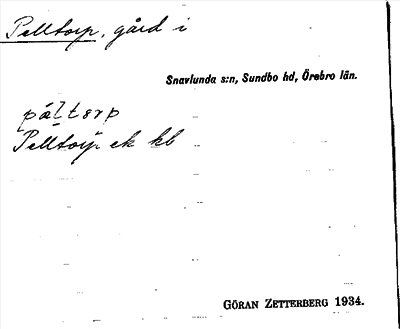 Pelltorp, gård i
Snavlunda s:n, Sundbo hd, Örebro län.
pál̠tərp
Pelltorp ek kb
GÖRAN ZETTERBERG 1934.